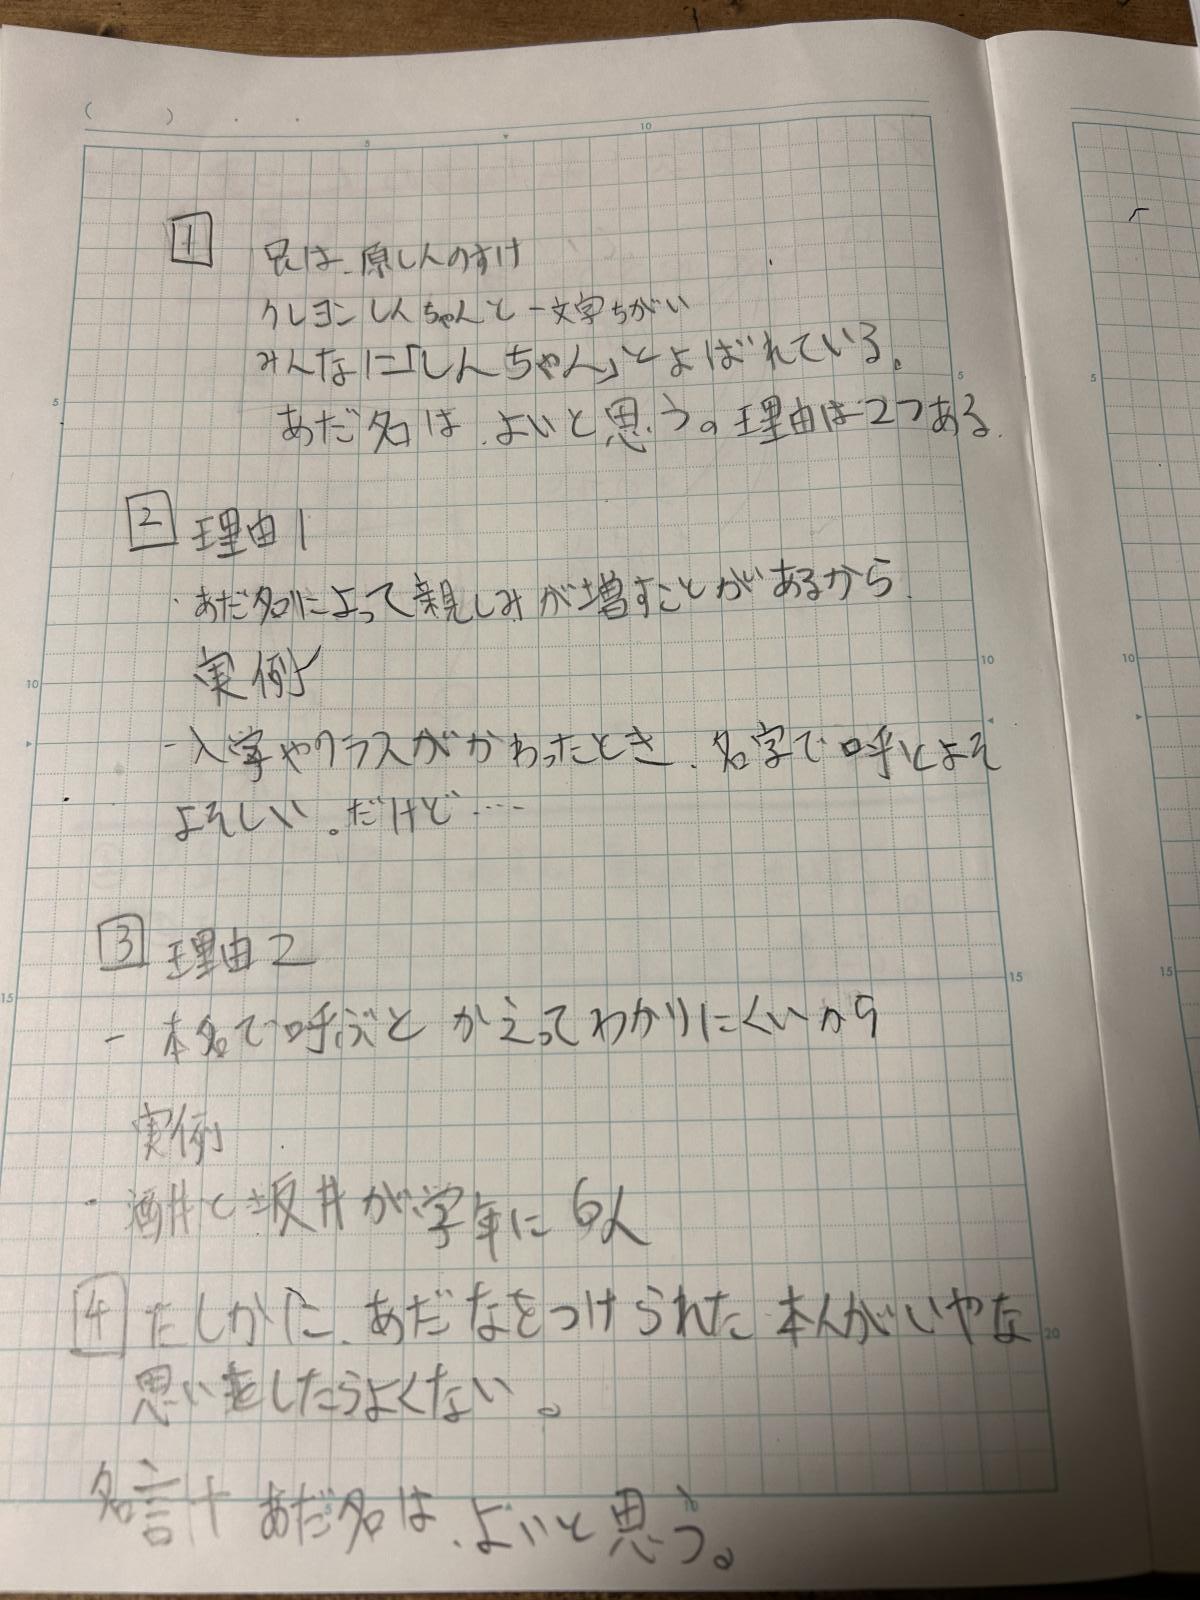 ( )
10
5
1
兄は、原しんのすけ
クレヨンしんちゃんと一文字ちがい
みんなに「しんちゃん」とよばれている。
あだ名は、よいと思う。理由は2つある.
2 理由1
・あだ名によって親しみが増すことがあるから.
実例
-入学やクラスがかわったとき、名字で呼とよそ
よそしい。だけど……
3 理由2
- 本名で呼ぶと かえってわかりにくいから
実例
・酒井と坂井が学年に6人
4 たしかに、あだなをつけられた本人がいやな
思いをしたらよくない。
名言+ あだ名は、よいと思う。